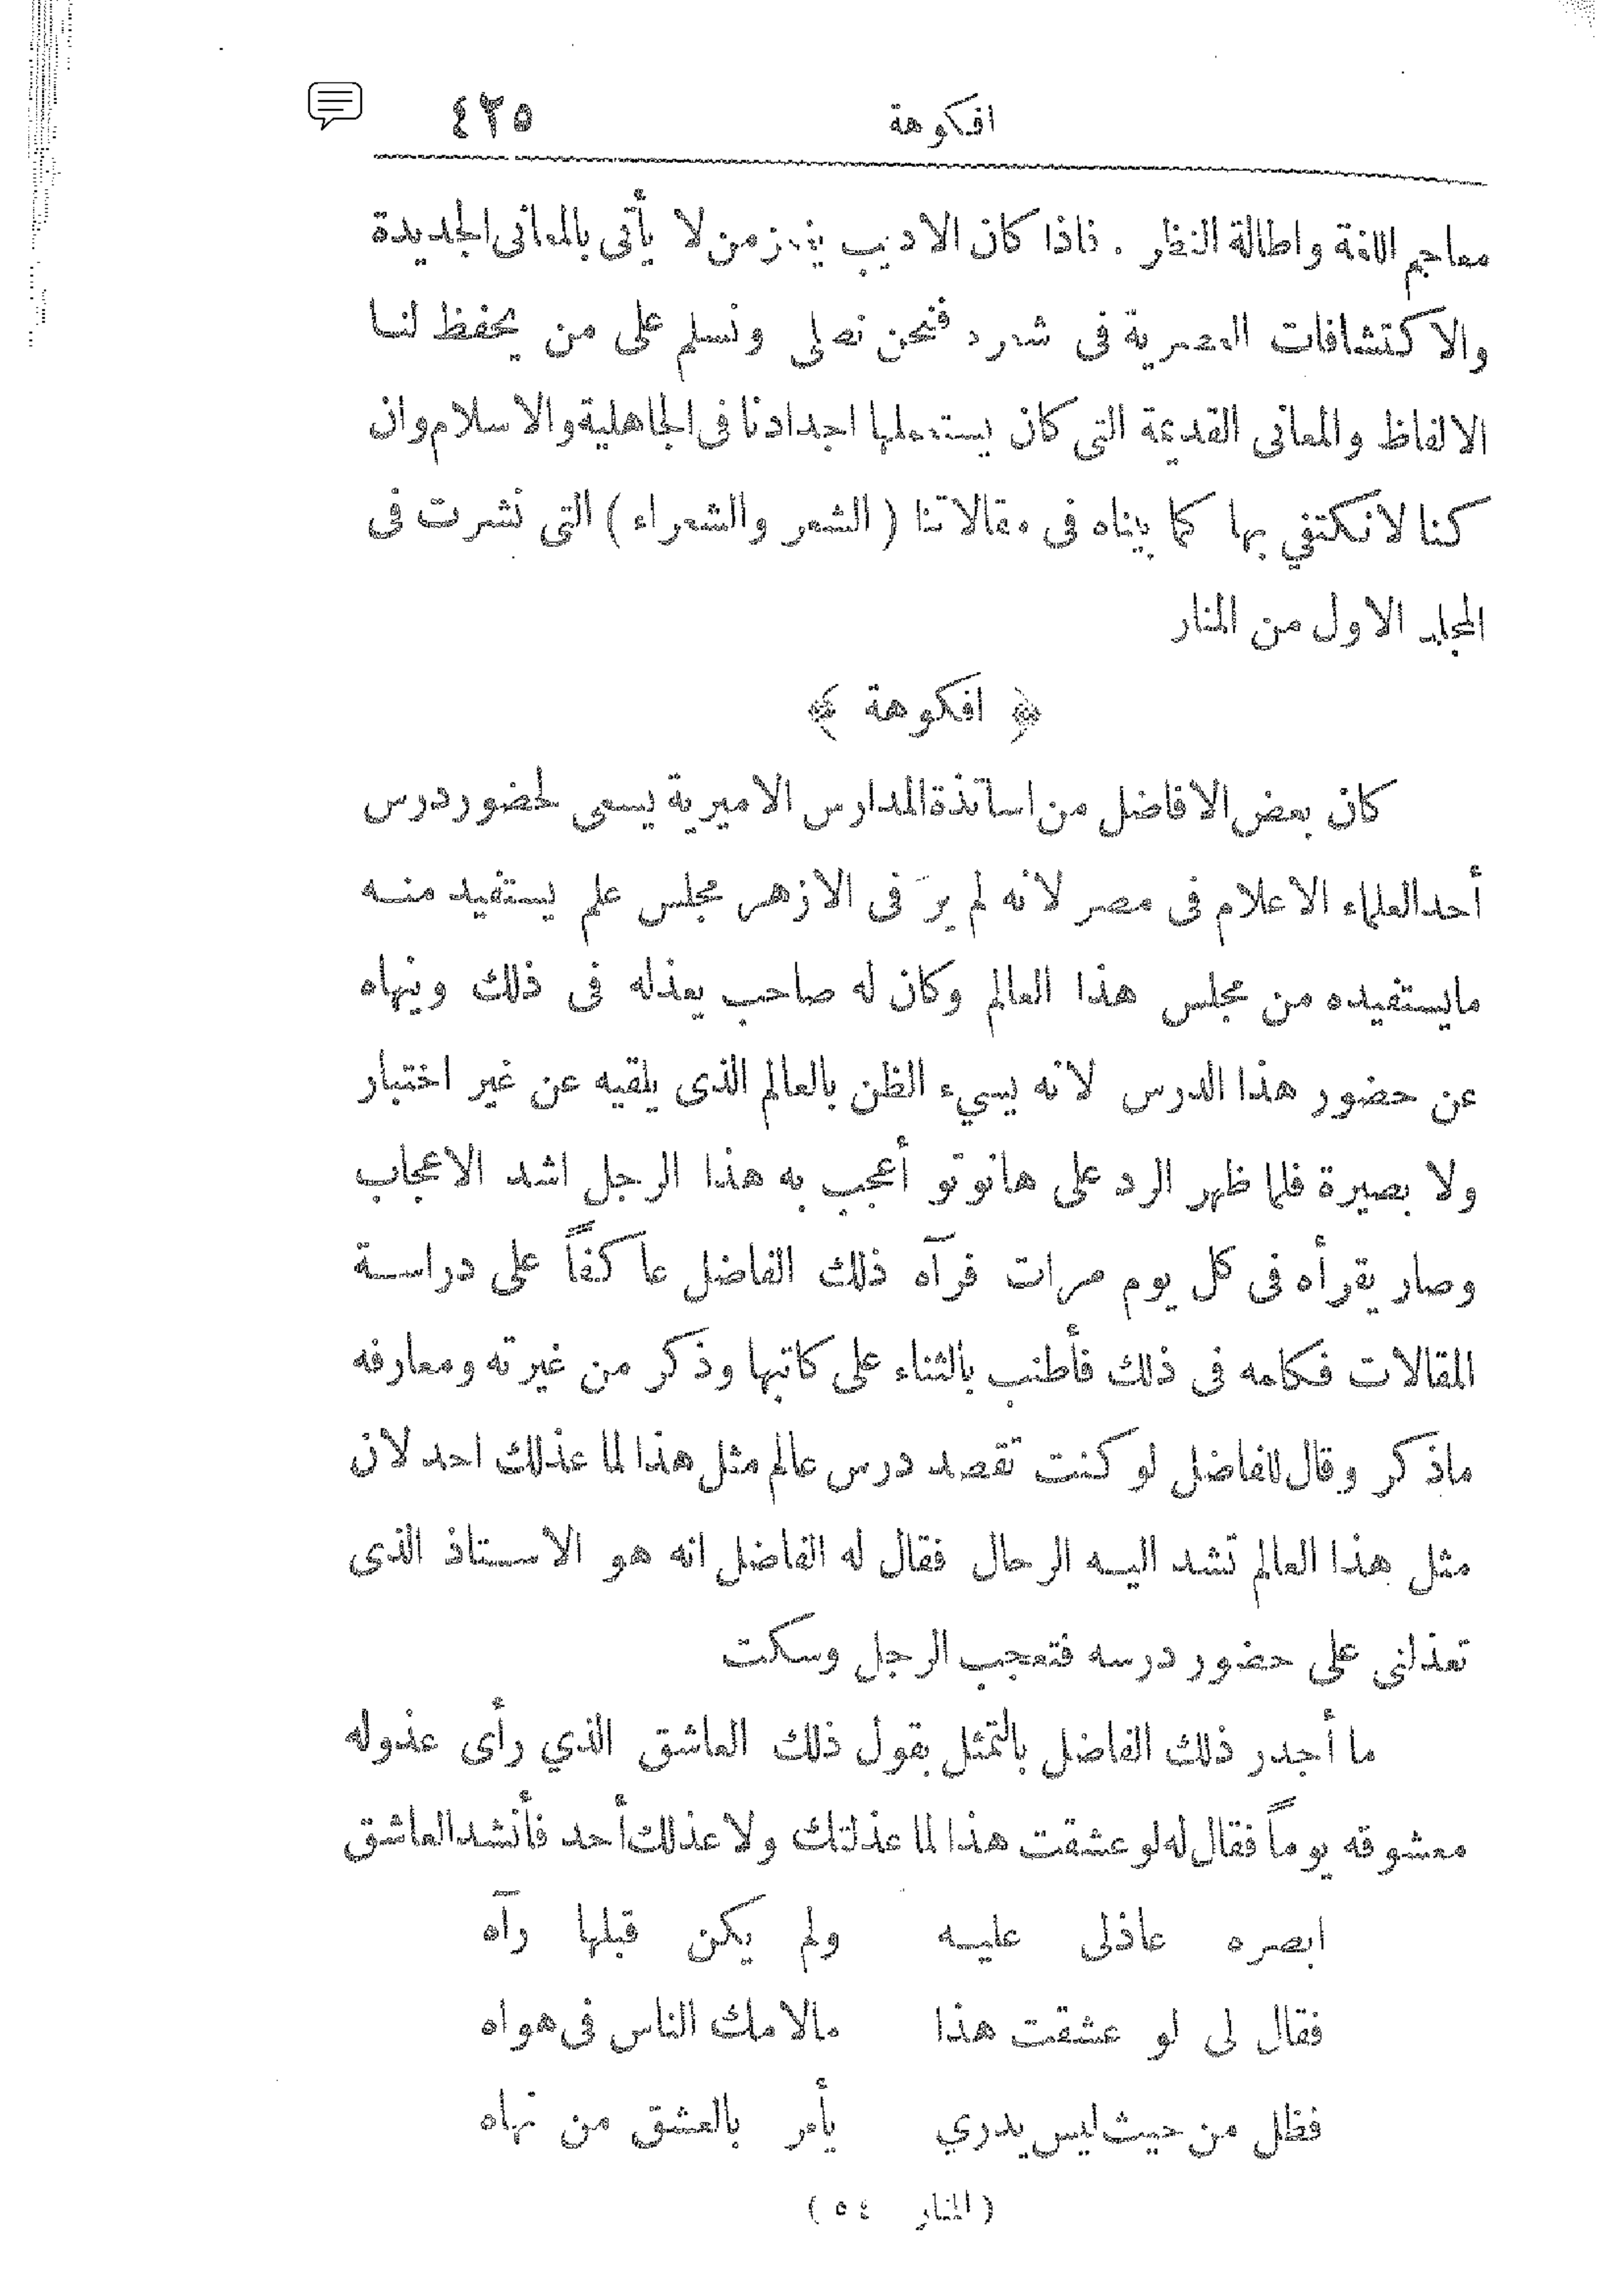 افكوهة ٤٢٥
معاجم اللغة واطالة النظر . فاذا كان الاديب ينبز من لا يأتى بالمعانى الجديدة
والاكتشافات العصرية فى شعره فنحن نصلى ونسلم على من يحفظ لنا
الالفاظ والمعانى القديمة التى كان يستعملها اجدادنا فى الجاهلية والاسلام وان
كنا لانكتفي بها كما بيناه فى مقالاتنا ( الشعر والشعراء ) التى نشرت فى
المجلد الاول من المنار
﴿ افكوهة ﴾
كان بعض الافاضل من اساتذة المدارس الاميرية يسعى لحضور درس
أحد العلماء الاعلام فى مصر لانه لم يرَ فى الازهر مجلس علم يستفيد منه
مايستفيده من مجلس هذا العالم وكان له صاحب يعذله فى ذلك وينهاه
عن حضور هذا الدرس لانه يسيء الظن بالعالم الذى يلقيه عن غير اختبار
ولا بصيرة فلما ظهر الرد على هانوتو أعجب به هذا الرجل اشد الاعجاب
وصار يقرأه فى كل يوم مرات فرآه ذلك الفاضل عاكفاً على دراسة
المقالات فكلمه فى ذلك فأطنب بالثناء على كاتبها وذكر من غيرته ومعارفه
ماذكر وقال للفاضل لو كنت تقصد درس عالم مثل هذا لما عذلك احد لان
مثل هذا العالم تشد اليه الرحال فقال له الفاضل انه هو الاستاذ الذى
تعذلنى على حضور درسه فتعجب الرجل وسكت
ما أجدر ذلك الفاضل بالتمثل بقول ذلك العاشق الذي رأى عذوله
معشوقه يوماً فقال له لو عشقت هذا لما عذلتك ولا عذلك أحد فأنشد العاشق
ابصره عاذلى عليه ولم يكن قبلها رآه
فقال لى لو عشقت هذا مالامك الناس فى هواه
فظل من حيث ليس يدري يأمر بالعشق من نهاه
( المنار ٥٤ )